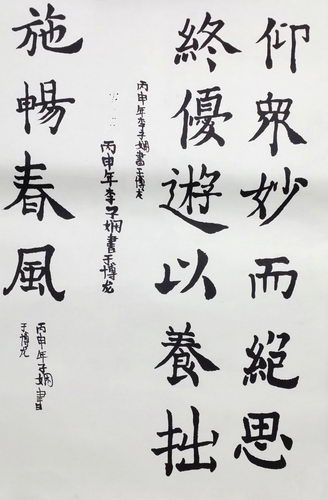 仰眾妙而絕思
終優遊以養拙
丙申年李子嫻書于博龙
丙申年李子嫻書于博龙
施暢春風
丙申年子嫻書
于博龙